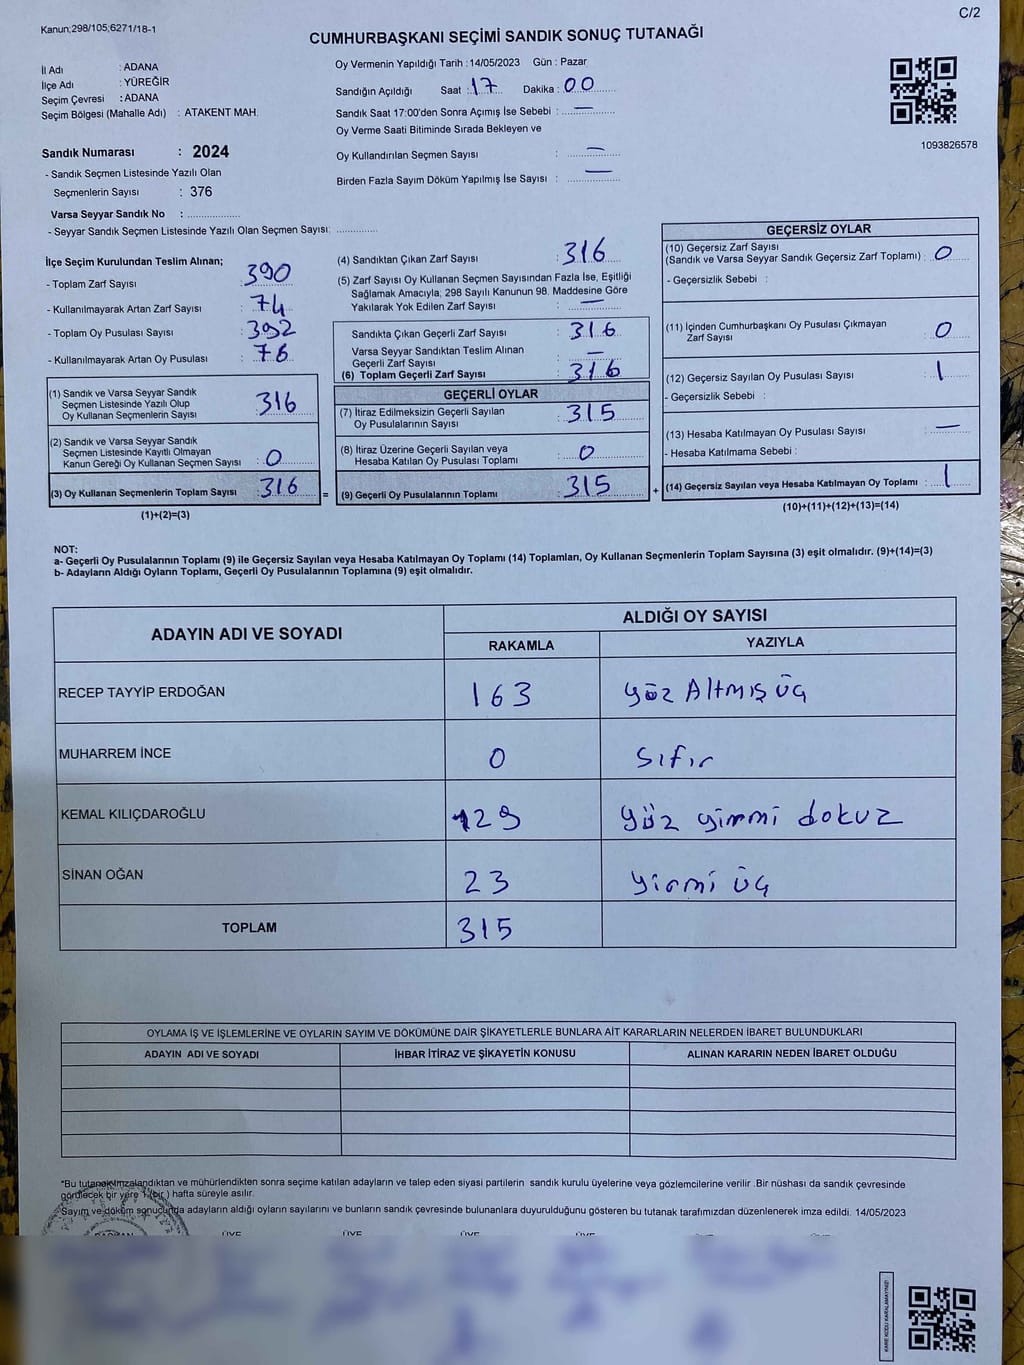 C/2
Kanun;298/105;6271/18-1
CUMHURBAŞKANI SEÇİMİ SANDIK SONUÇ TUTANAĞI
İl Adı : ADANA
İlçe Adı : YÜREĞİR
Seçim Çevresi : ADANA
Seçim Bölgesi (Mahalle Adı) : ATAKENT MAH.
Sandık Numarası : 2024
- Sandık Seçmen Listesinde Yazılı Olan
Seçmenlerin Sayısı : 376
Varsa Seyyar Sandık No :
- Seyyar Sandık Seçmen Listesinde Yazılı Olan Seçmen Sayısı:
Oy Vermenin Yapıldığı Tarih : 14/05/2023 Gün : Pazar
Sandığın Açıldığı Saat : 17 Dakika : 00
Sandık Saat 17:00'den Sonra Açımış İse Sebebi : —
Oy Verme Saati Bitiminde Sırada Bekleyen ve
Oy Kullandırılan Seçmen Sayısı : —
Birden Fazla Sayım Döküm Yapılmış İse Sayısı : —
1093826578
İlçe Seçim Kurulundan Teslim Alınan;
- Toplam Zarf Sayısı : 390
- Kullanılmayarak Artan Zarf Sayısı : 74
- Toplam Oy Pusulası Sayısı : 392
- Kullanılmayarak Artan Oy Pusulası : 76
(1) Sandık ve Varsa Seyyar Sandık
Seçmen Listesinde Yazılı Olup
Oy Kullanan Seçmenlerin Sayısı : 316
(2) Sandık ve Varsa Seyyar Sandık
Seçmen Listesinde Kayıtlı Olmayan
Kanun Gereği Oy Kullanan Seçmen Sayısı : 0
(3) Oy Kullanan Seçmenlerin Toplam Sayısı : 316 =
(1)+(2)=(3)
(4) Sandıktan Çıkan Zarf Sayısı : 316
(5) Zarf Sayısı Oy Kullanan Seçmen Sayısından Fazla İse, Eşitliği
Sağlamak Amacıyla; 298 Sayılı Kanunun 98. Maddesine Göre
Yakılarak Yok Edilen Zarf Sayısı : —
Sandıkta Çıkan Geçerli Zarf Sayısı : 316
Varsa Seyyar Sandıktan Teslim Alınan
Geçerli Zarf Sayısı : —
(6) Toplam Geçerli Zarf Sayısı : 316
GEÇERLİ OYLAR
(7) İtiraz Edilmeksizin Geçerli Sayılan
Oy Pusulalarının Sayısı : 315
(8) İtiraz Üzerine Geçerli Sayılan veya
Hesaba Katılan Oy Pusulası Toplamı : 0
(9) Geçerli Oy Pusulalarının Toplamı : 315 +
GEÇERSİZ OYLAR
(10) Geçersiz Zarf Sayısı
(Sandık ve Varsa Seyyar Sandık Geçersiz Zarf Toplamı) : 0
- Geçersizlik Sebebi :
(11) İçinden Cumhurbaşkanı Oy Pusulası Çıkmayan
Zarf Sayısı : 0
(12) Geçersiz Sayılan Oy Pusulası Sayısı : 1
- Geçersizlik Sebebi :
(13) Hesaba Katılmayan Oy Pusulası Sayısı : —
- Hesaba Katılmama Sebebi :
(14) Geçersiz Sayılan veya Hesaba Katılmayan Oy Toplamı : 1
(10)+(11)+(12)+(13)=(14)
NOT:
a- Geçerli Oy Pusulalarının Toplamı (9) ile Geçersiz Sayılan veya Hesaba Katılmayan Oy Toplamı (14) Toplamları, Oy Kullanan Seçmenlerin Toplam Sayısına (3) eşit olmalıdır. (9)+(14)=(3)
b- Adayların Aldığı Oyların Toplamı, Geçerli Oy Pusulalarının Toplamına (9) eşit olmalıdır.
ADAYIN ADI VE SOYADI ALDIĞI OY SAYISI
RAKAMLA YAZIYLA
RECEP TAYYİP ERDOĞAN 163 yüz Altmış üç
MUHARREM İNCE 0 sıfır
KEMAL KILIÇDAROĞLU 129 yüz yirmi dokuz
SİNAN OĞAN 23 yirmi üç
TOPLAM 315
OYLAMA İŞ VE İŞLEMLERİNE VE OYLARIN SAYIM VE DÖKÜMÜNE DAİR ŞİKAYETLERLE BUNLARA AİT KARARLARIN NELERDEN İBARET BULUNDUKLARI
ADAYIN ADI VE SOYADI İHBAR İTİRAZ VE ŞİKAYETİN KONUSU ALINAN KARARIN NEDEN İBARET OLDUĞU
*Bu tutanak imzalandıktan ve mühürlendikten sonra seçime katılan adayların ve talep eden siyasi partilerin sandık kurulu üyelerine veya gözlemcilerine verilir .Bir nüshası da sandık çevresinde
görülecek bir yere 1 (bir ) hafta süreyle asılır.
Sayım ve döküm sonucunda adayların aldığı oyların sayılarını ve bunların sandık çevresinde bulunanlara duyurulduğunu gösteren bu tutanak tarafımızdan düzenlenerek imza edildi. 14/05/2023
BAŞKAN ÜYE ÜYE ÜYE ÜYE ÜYE
KARE KODU KARALAMAYINIZ!